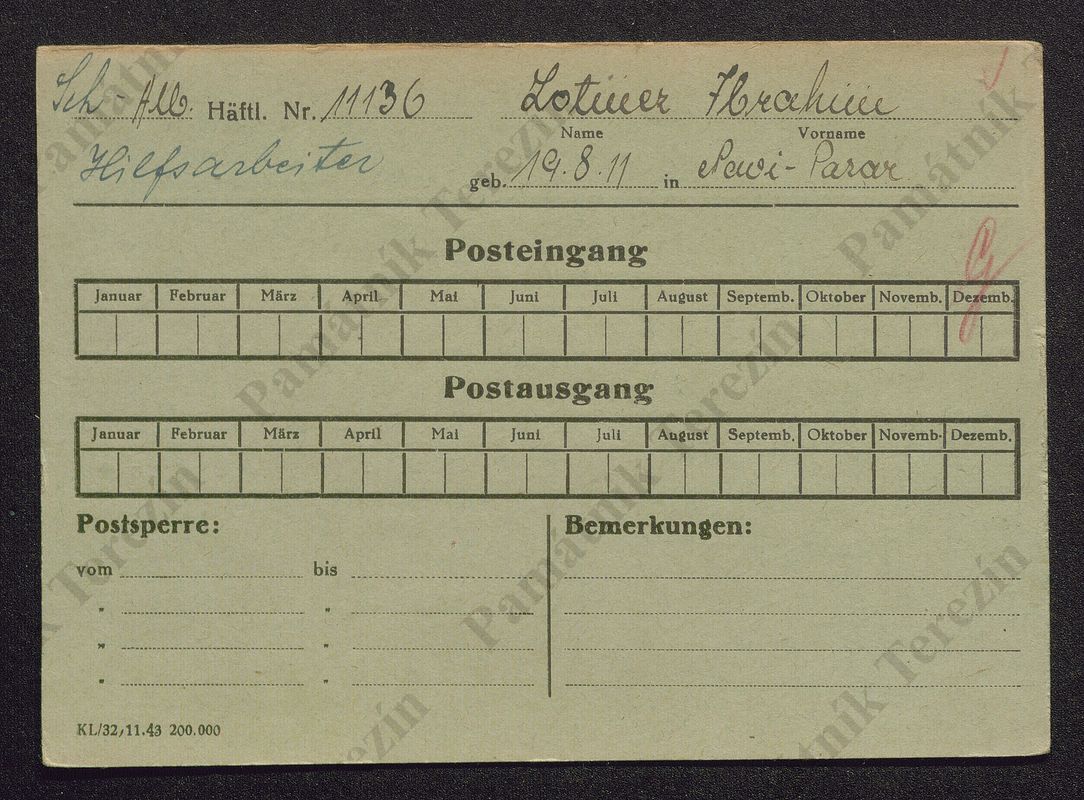 Sch. Alb. Häftl. Nr. 11136 Lotiner Ibrahim
Name Vorname
Hilfsarbeiter geb. 19.8.11 in Pazar
Posteingang
Januar Februar März April Mai Juni Juli August Septemb. Oktober Novemb. Dezemb.
Postausgang
Januar Februar März April Mai Juni Juli August Septemb. Oktober Novemb. Dezemb.
Postsperre: Bemerkungen:
vom bis
" "
" "
" "
KL/32/11.43 200.000
Památník Terezín